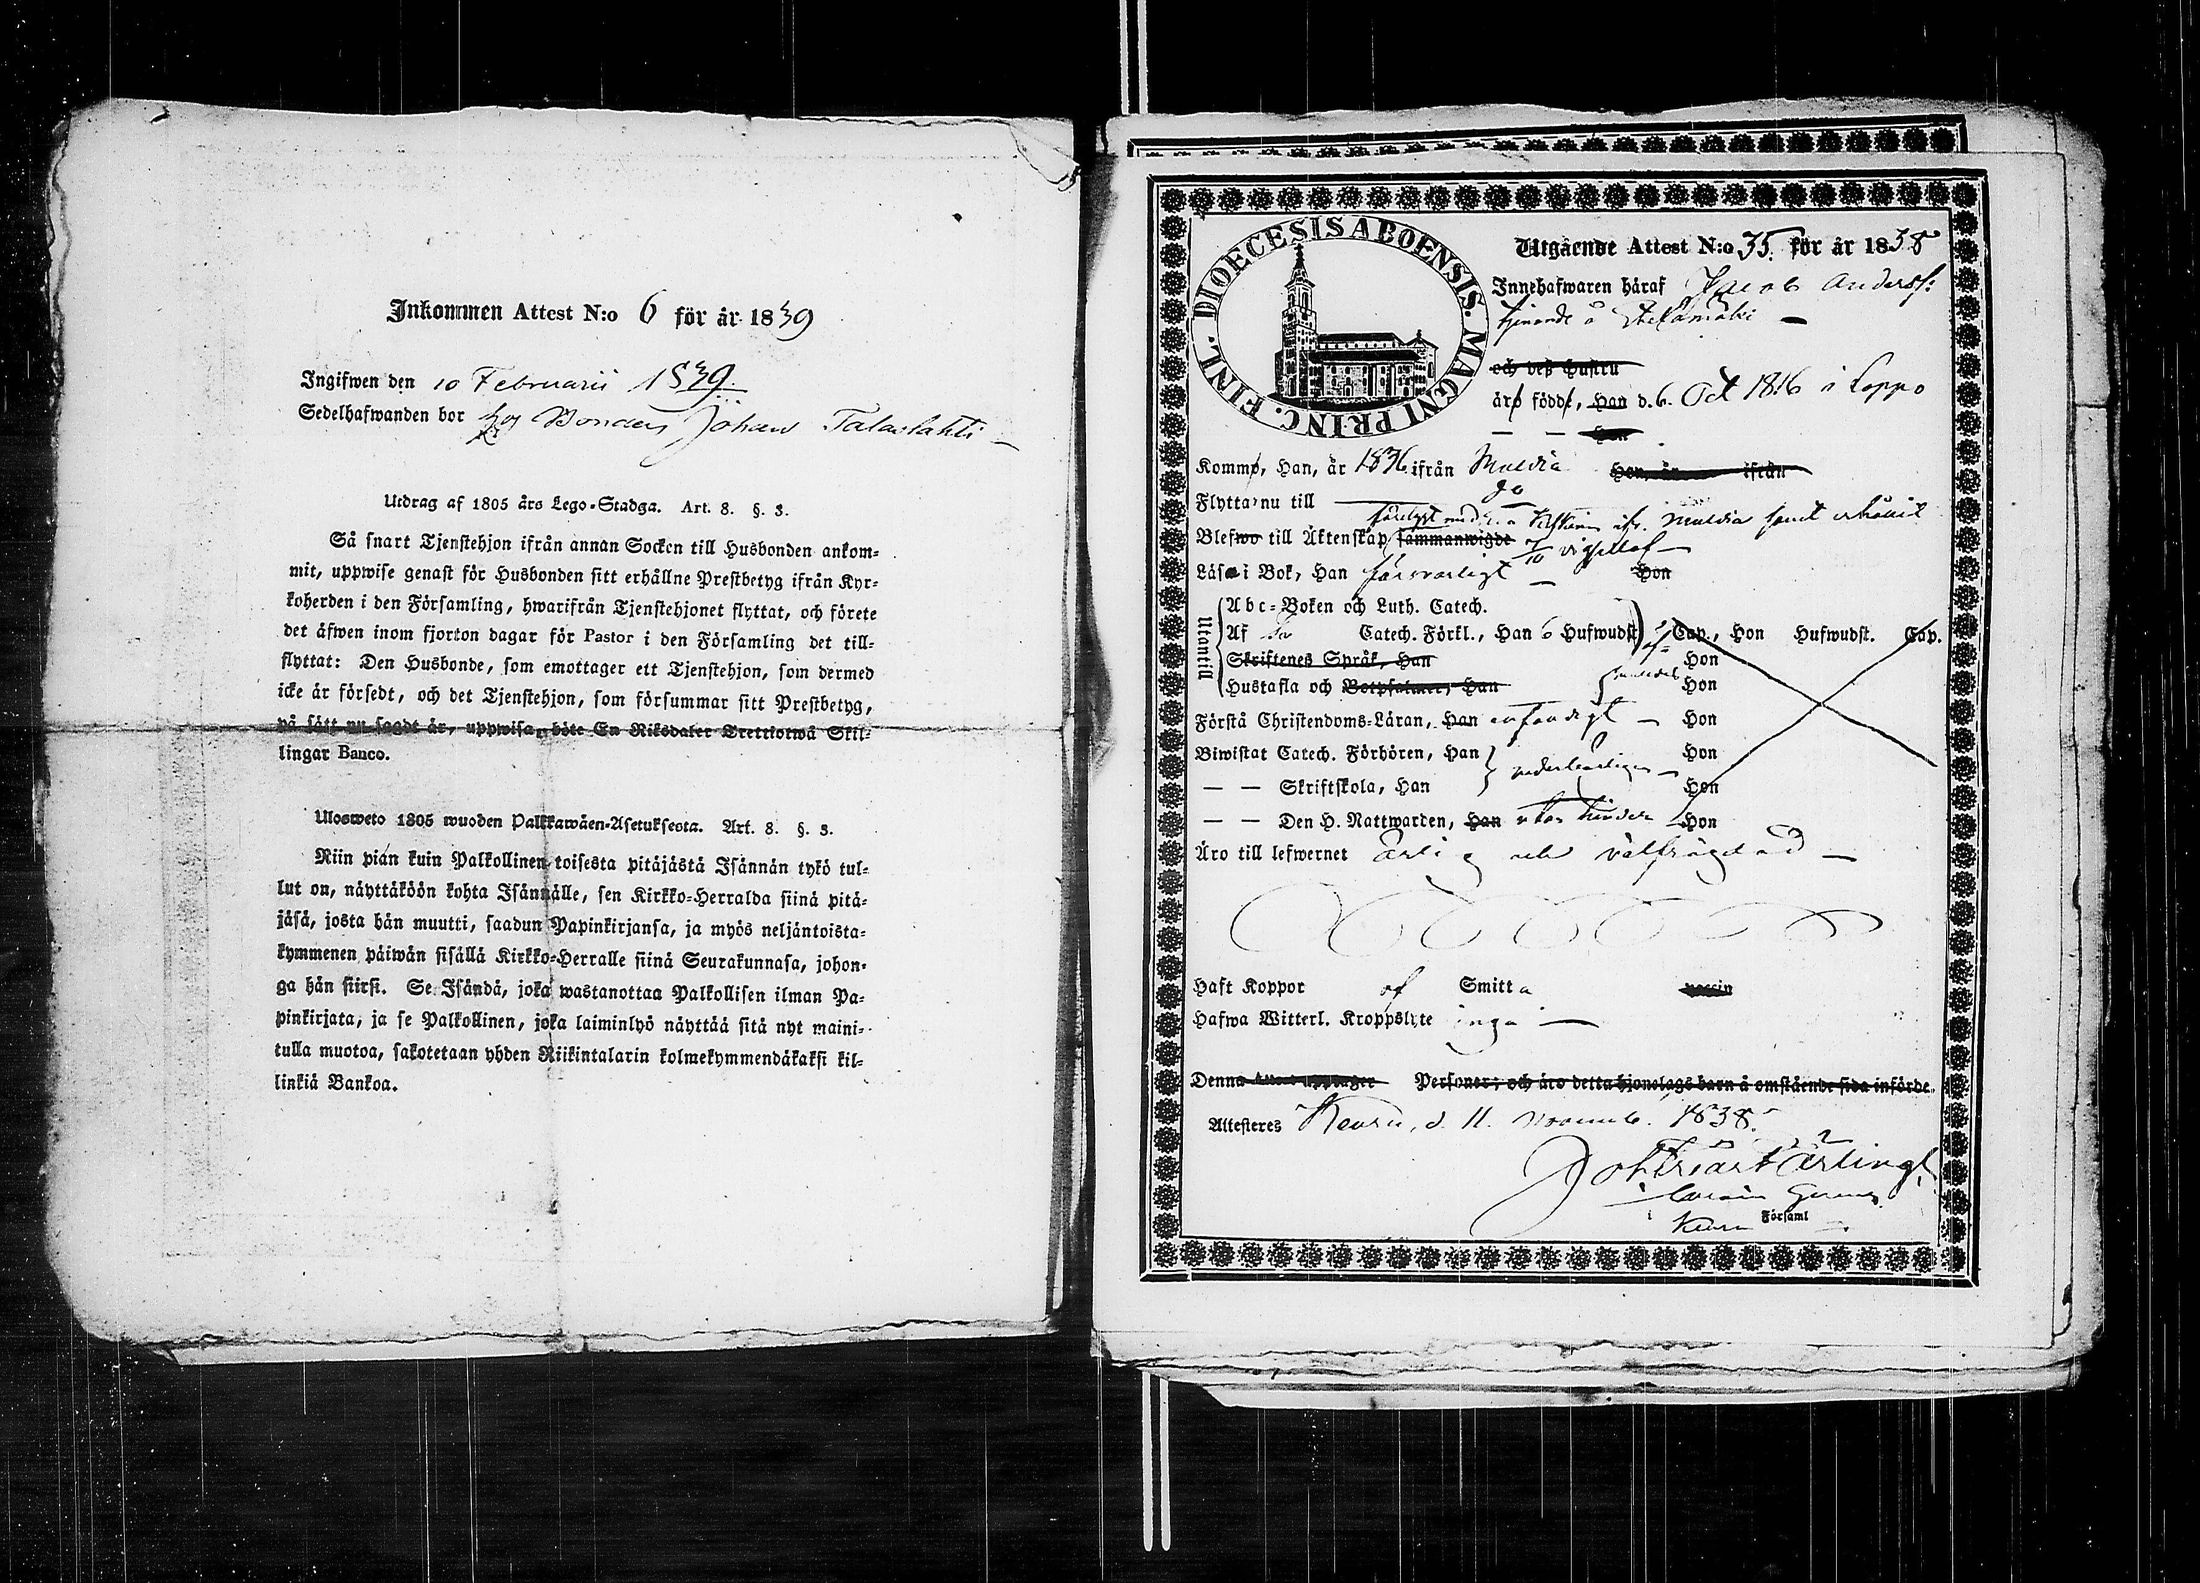 Inkommen Attest N:o 6 för år 1839
Ingifwen den 10 Februarii 1839.
Sedelhafwanden bor hos Bonden Johan Talaslahti
Utdrag af 1805 års Lego-Stadga. Art. 8. §. 3.
Så snart Tjenstehjon ifrån annan Socken till Husbonden ankom-
mit, uppwise genast för Husbonden sitt erhållne Prestbetyg ifrån Kyr-
koherden i den Församling, hwarifrån Tjenstehjonet flyttat, och förete
det äfwen inom fjorton dagar för Pastor i den Församling det till-
flyttat: Den Husbonde, som emottager ett Tjenstehjon, som dermed
icke är försedt, och det Tjenstehjon, som försummar sitt Prestbetyg,
på sätt nu sagdt är, uppwisa, böte En Riksdaler Trettiotwå Skil-
lingar Banco.
Ulosweto 1805 wuoden Palkkawäen-Asetuksesta. Art. 8. §. 3.
Niin pian kuin Palkollinen toisesta pitäjästä Isännän tykö tul-
lut on, näyttäköön kohta Isännälle, sen Kirkko-Herralda siinä pitä-
jäsä, josta hän muutti, saadun Papinkirjansa, ja myös neljäntoista-
kymmenen päiwän sisällä Kirkko-Herralle siinä Seurakunnasa, johon-
ga hän siirsi. Se Isändä, joka wastanottaa Palkollisen ilman Pa-
pinkirjata, ja se Palkollinen, joka laiminlyö näyttää sitä nyt maini-
tulla muotoa, sakotetaan yhden Riikintalarin kolmekymmendäkaksi kil-
linkiä Bankoa.
DIOECESIS ABOENSIS. MAGNI PRINC. FINL.
Utgående Attest N:o 35. för år 1838
Innehafwaren häraf Jacob Anderss:
tjenande å
och deß hustru
äro född, Han d. 6. Oct 1816 i Loppo
Hon
Komm, Han, år 1836 ifrån Muldia Hon, år ifrån
Flytta nu till do
förelyst med ifr. Muldia samt erhållit
Blefwo till Äktenskap sammanwigde
Läsa i Bok, Han försvarligt Hon
Utantill
Abc-Boken och Luth. Catech.
Af Catech. Förkl., Han 6 Hufwudst. Cap., Hon Hufwudst. Cap.
Skriftenes Språk, Han Hon
Hustafla och Botpsalmer, Han Hon
Förstå Christendoms-Läran, Han Hon
Biwistat Catech. Förhören, Han Hon
— — Skriftskola, Han Hon
— — Den H. Nattwarden, Han utan hinder Hon
Äro till lefwernet ärlig och välfrägdad
Haft Koppor af Smitta
Hafwa Witterl. Kroppslyte inga
Denna Attest upptager Personer; och äro detta hjonelags barn å omstående sida införde.
Attesteres Keuru, d. 11. Novemb. 1838.
i Keuru Församl